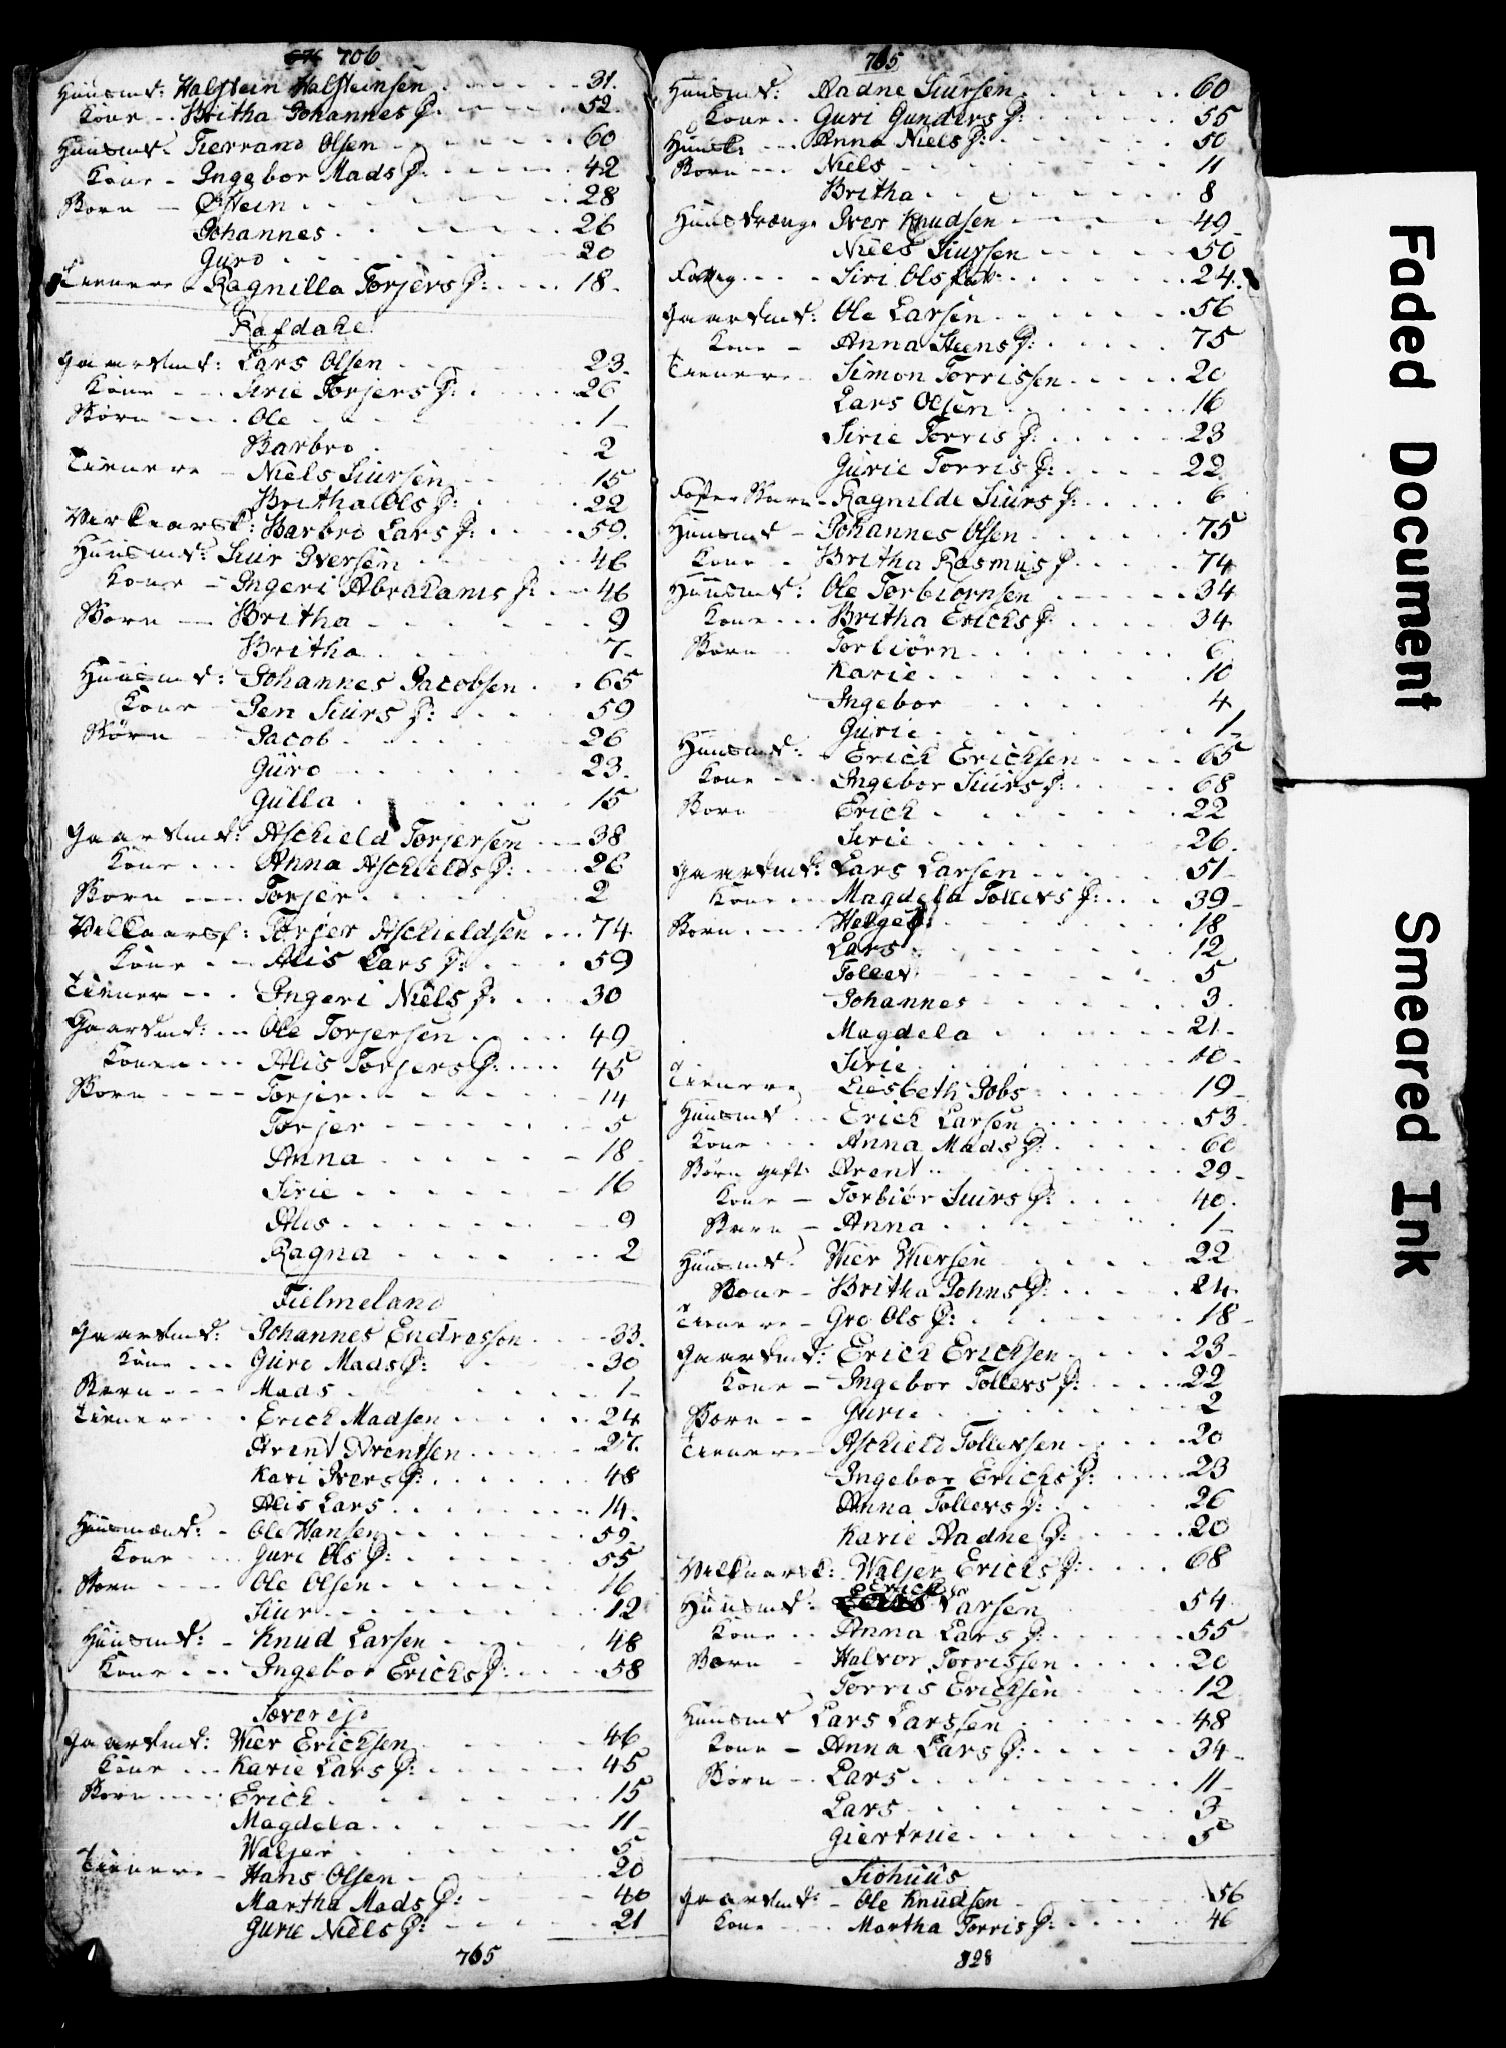 706
Huusmd: Halstein Halsteinsen 31.
Kone Britha Johannes D: 52.
Huusmd. Tierrand Olsen 60
Kone Ingebor Mads D: 42
Børn Østein 28
Johannes 26
Guro 20
Tienere Ragnilla Torjers D: 18.
Rafdahl
Gaardmd: Lars Olsen 23.
Kone Sirie Torjers D: 26
Børn Ole 1
Barbro 2
Tienere Niels Siursen 15
Britha Ols D: 22
Barbro Lars D: 59.
Huusmd: Siur Iversen 46
Kone Ingeri Abrahams D: 46
Børn Britha 9
Britha 7
Huusmd: Johannes Jacobsen 65
Kone Jen Siurs D: 59
Børn Jacob 26
Guro 23.
Gulla 15
Gaardmd: Aschield Torjersen 38
Kone Anna Aschields D: 26
Børn Torjer 2
Vilkaarsf: Torjer Aschieldsen 74
Kone Alis Lars D: 59
Tiener Ingeri Niels D: 30
Gaardmd: Ole Torjersen 49
Konen Alis Torjers D: 45
Børn Torjer 14
Torjer 5
Anna 18
Sirie 16
Alis 9
Ragna 2
Fielmeland
Gaardmd: Johannes Endresson 33.
Kone Guro Mads D: 30
Børn Mads 1
Tienere Erich Madsen 24
Arent Arentsen 27.
Kari Ivers D: 48
Alis Lars 14.
Huusmand: Ole Hansen 59
Kone Guri Ols D: 55
Børn Ole Olsen 16
Siur 12
Huusmd: Knud Larsen 48
Kone Ingebor Erichs D: 58
Gaardmd: Wier Erichsen 46
Kone Karie Lars D: 45
Børn Erich 15
Magdela 11
Waljer 5
Tienere Hans Olsen 20
Martha Mads D: 40
Gurie Niels D: 21
765
765
Huusmd: Aadne Siursen 60
Kone Guri Gunders D: 55
Anna Niels D: 50
Børn Niels 11
Britha 8
Iver Knudsen 49
Niels Siursen 50
Siri Ols 24.
Gaardmd: Ole Larsen 56
Kone Anna Steens D: 75
Tienere Simon Torrissen 20
Lars Olsen 16
Sirie Torris D: 23
Gurie Torris D: 22
Foster Barn Ragnilde Siurs D: 6
Huusmd Johannes Olsen 75
Kone Britha Rasmus D 74
Huusmd: Ole Torbiørnsen 34
Kone Britha Erichs D: 34
Børn Torbiørn 6
Karie 10
Ingebor 4
Gurie 1
Huusmd: Erich Erichsen 65
Kone Ingebor Siurs D: 68
Børn Erich 22
Sirie 26.
Gaardmd: Lars Larsen 51
Kone Magdela Tollevs D: 39
Børn Helge 18
Lars 12
Tollev 5
Johannes 3.
Magdela 21
Sirie 10
Tienere Liesbeth Jobs 19
Huusmd Erich Larsen 53
Kone Anna Mads D: 60
Børn gift: Arent 29
Kone Torbiør Siurs D: 40.
Barn Anna 1
Huusmd: Wier Wiersen 22
Kone Britha Johns D: 24.
Tienere Gro Ols D: 18
Gaardmd: Erich Erichsen 23
Kone Ingebor Tollevs D: 22
Børn Gurie 2
Tienere Aschield Tollevsen 20
Ingebor Erichs D: 23
Anna Tollevs D: 26
Karie Aadne D: 20
Waljer Erichs D: 68
Huusmd: Erich Larsen 54
Kone Anna Lars D: 55
Børn Halvor Torrissen 20
Torris Erichsen 12
Huusmd Lars Larssen 48
Kone Anna Lars D: 34
Børn Lars 11
Lars 3
Giertrue 5
Siohuus
Gaardmd: Ole Knudsen 56
Kone Martha Torris D: 46
828
Faded Document
Smeared Ink